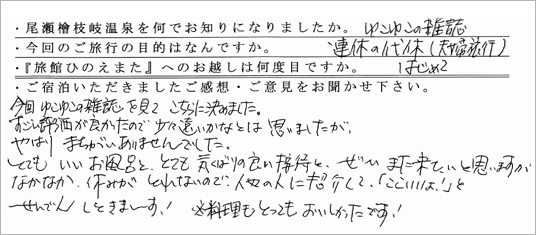 ・尾瀬檜枝岐温泉を何でお知りになりましたか。 ゆこゆこの雑誌
・今回のご旅行の目的はなんですか。 連休の代休(夫婦旅行)
・『旅館ひのえまた』へのお越しは何度目ですか。 はじめて
・ご宿泊いただきましたご感想・ご意見をお聞かせ下さい。
今回ゆこゆこの雑誌を見てこちらに決めました。
すごい評価が良かったので少々遠いかなとは思いましたが、
やはりまちがいありませんでした。
とてもいいお風呂と、とても気くばりの良い接待と、ぜひまた来たいと思いますが
なかなか休みがとれないので、他の人に紹介して、「ここいいよ!」と
せんでんしときまーす! ※料理もとってもおいしかったです!